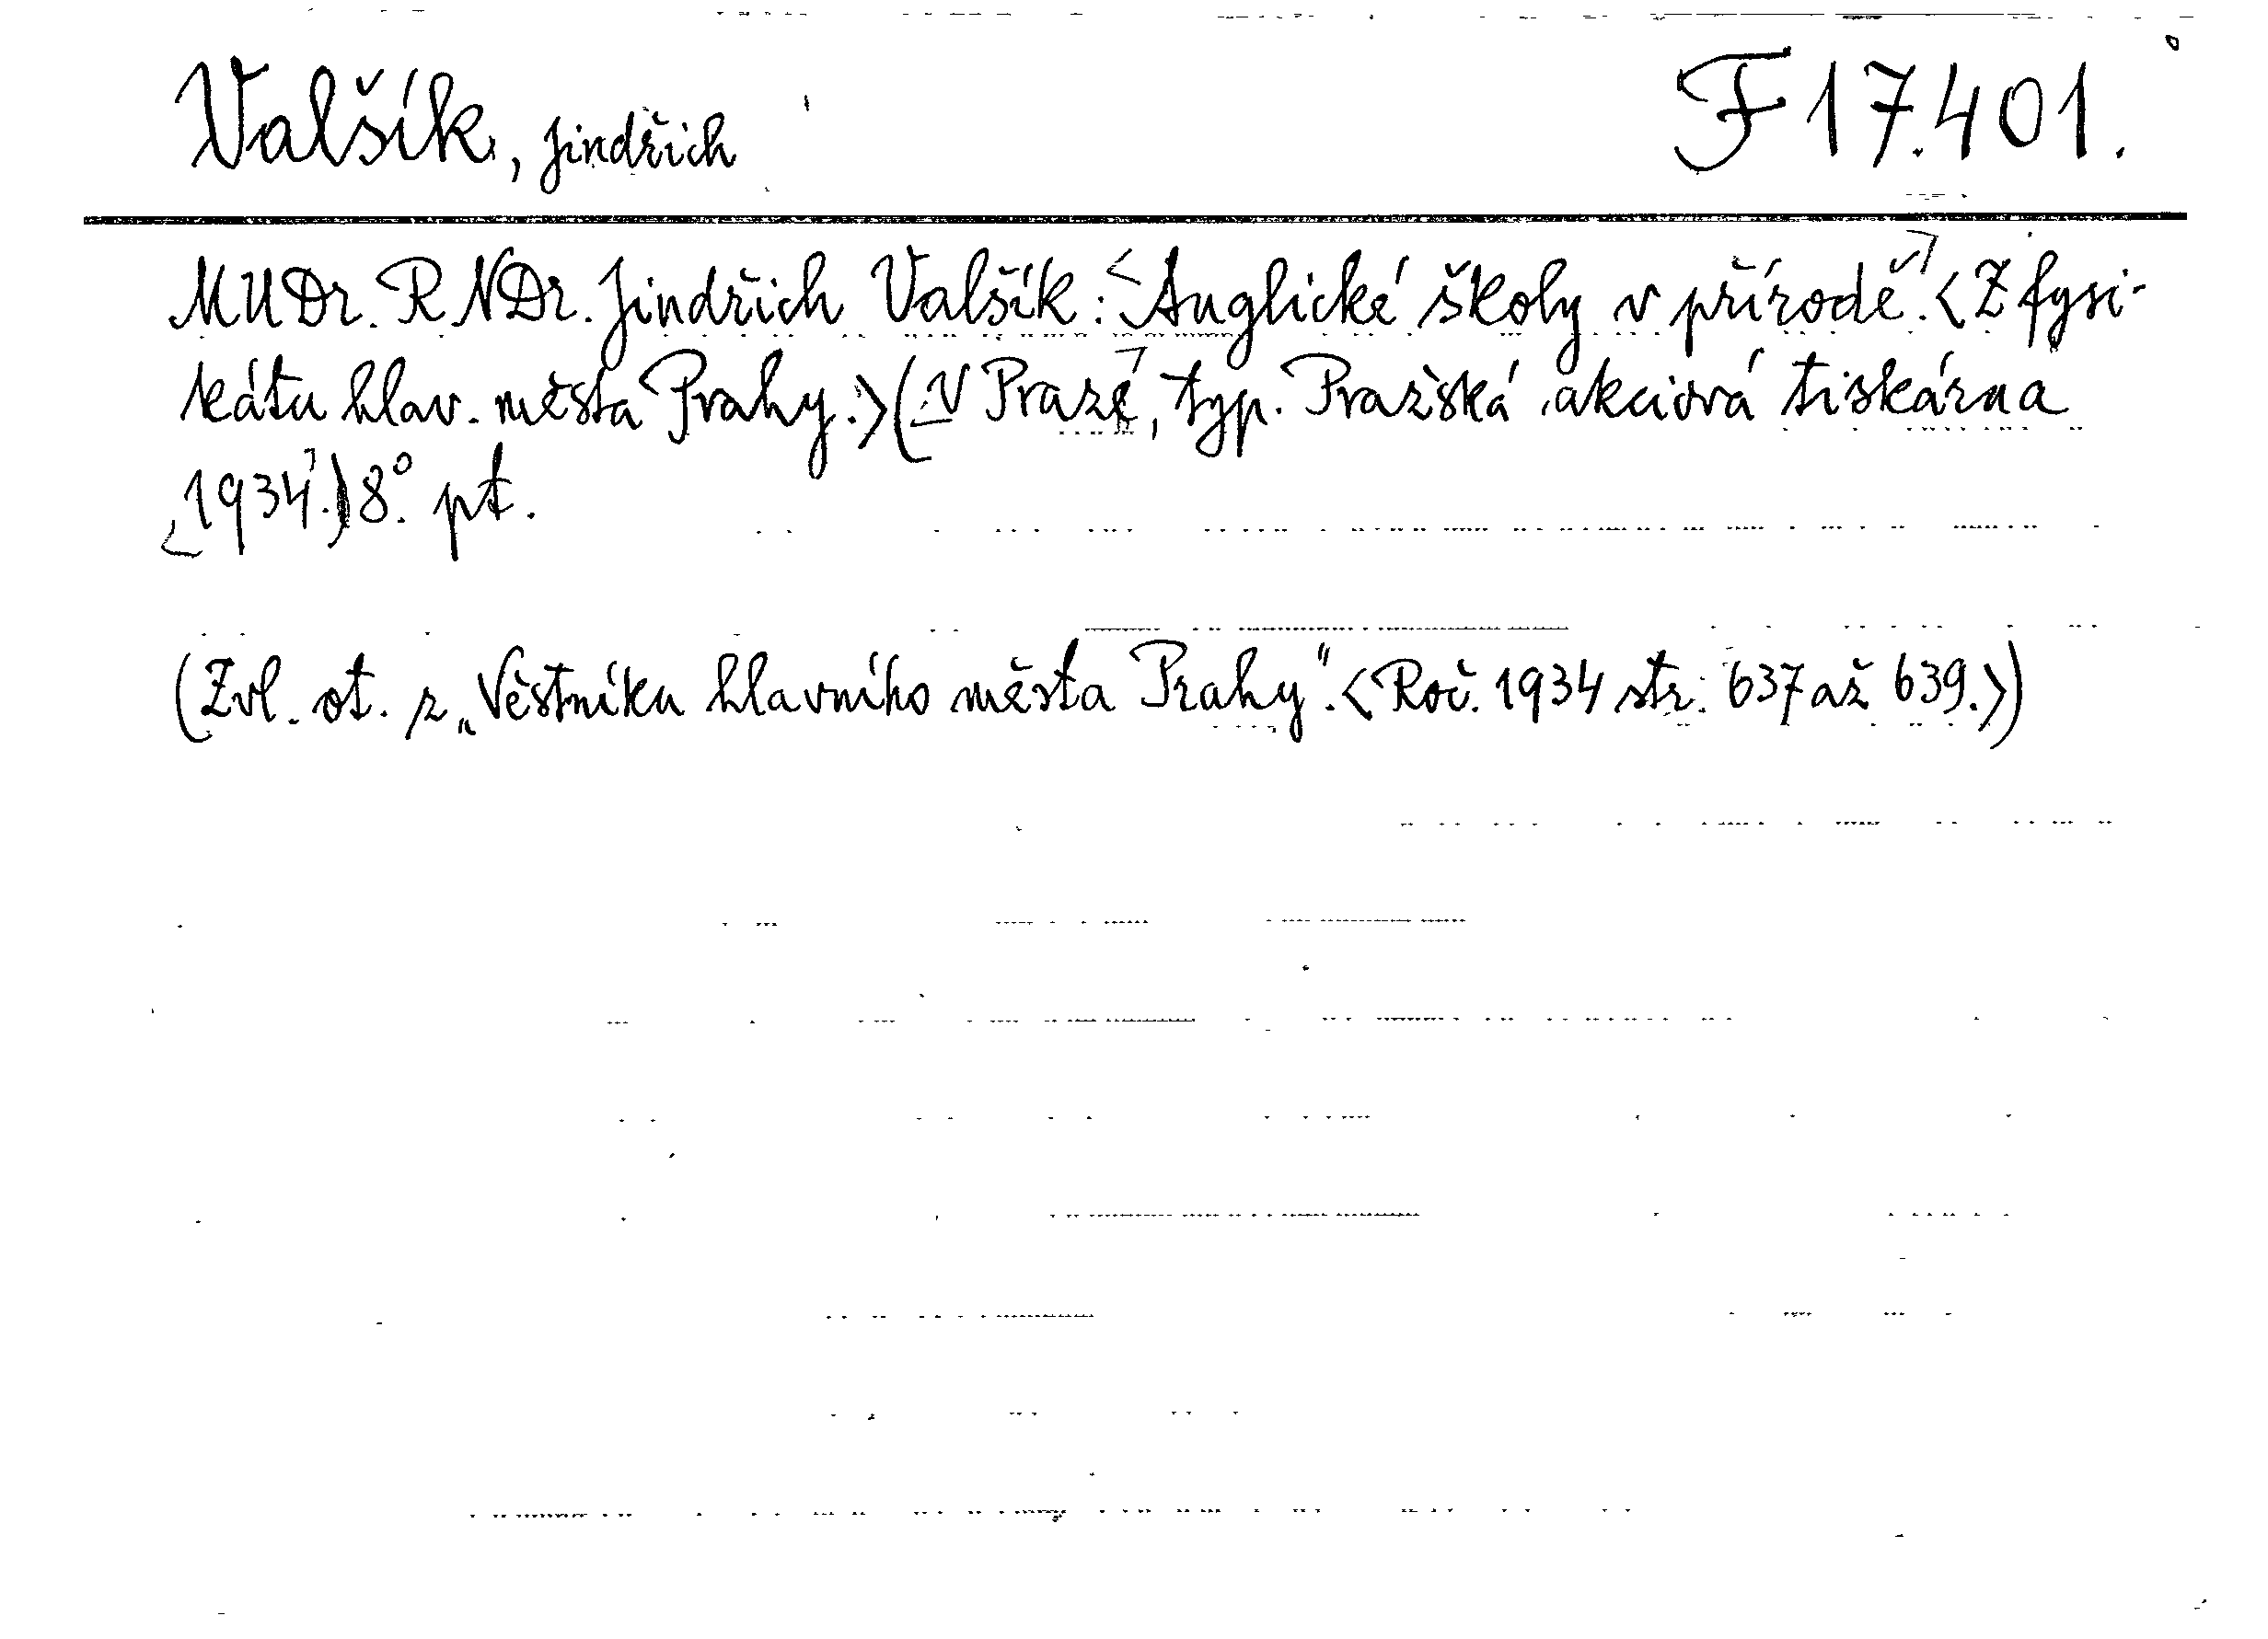 Valšík, Jindřich F 17.401.
MUDr. RNDr. Jindřich Valšík: Anglické školy v přírodě. <Z fysi-
kátu hlav. města Prahy.> (V Praze, typ. Pražská akciová tiskárna
1934.) 8°. pt.
(Zvl. ot. z „Věstníku hlavního města Prahy". <Roč. 1934 str. 637 až 639.>)